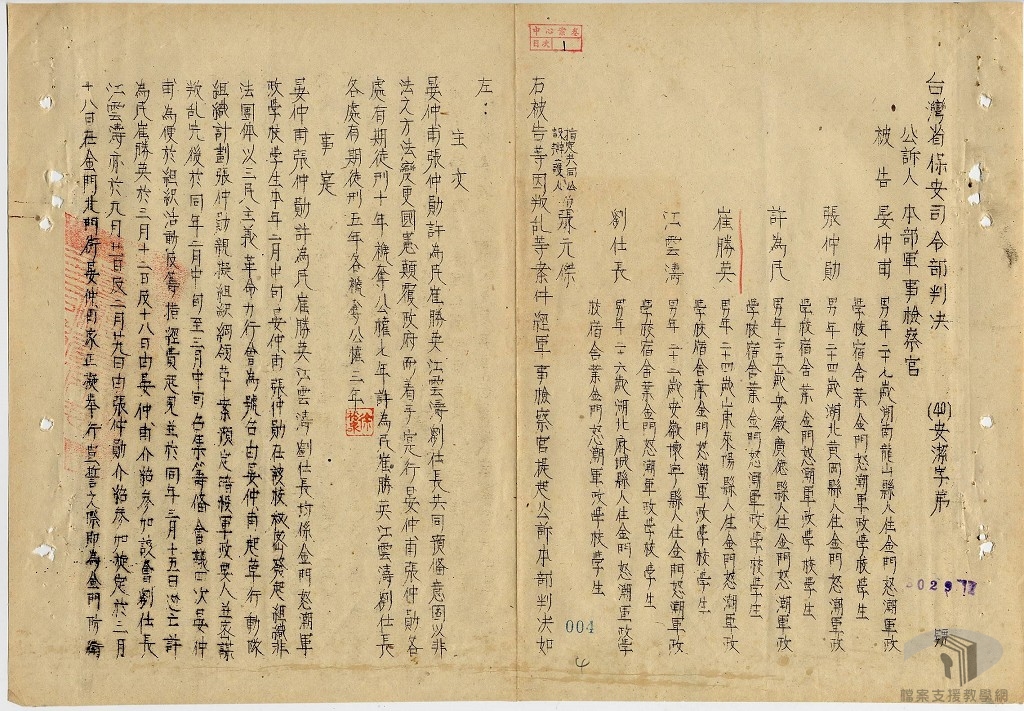 台灣省保安司令部判決
(40)安潔字第
號
公訴人 本部軍事檢察官
被告 晏仲甫 男年二十九歲湖南龍山縣人住金門怒潮軍政
學校宿舍業金門怒潮軍政學校學生
張仲勛 男年二十四歲湖北黃岡縣人住金門怒潮軍政
學校宿舍業金門怒潮軍政學校學生
許為民 男年二十五歲安徽廣德縣人住金門怒潮軍政
學校宿舍業金門怒潮軍政學校學生
崔勝英 男年二十四歲山東萊陽縣人住金門怒潮軍政
學校宿舍業金門怒潮軍政學校學生
江雲濤 男年二十二歲安徽懷寧縣人住金門怒潮軍政
學校宿舍業金門怒潮軍政學校學生
劉仕長 男年二十六歲湖北麻城縣人住金門怒潮軍政學
校宿舍業金門怒潮軍政學校學生
指定共同公設辯護人 張元傑
右被告等因叛乱等案件經軍事檢察官提起公訴本部判決如
左：
主文
晏仲甫張仲勛許為民崔勝英江雲濤劉仕長共同預備意圖以非
法之方法變更國憲顛覆政府而着手実行晏仲甫張仲勛各
處有期徒刑十年褫奪公權七年許為民崔勝英江雲濤劉仕長
各處有期徒刑五年各褫奪公權三年
事実
晏仲甫張仲勛許為民崔勝英江雲濤劉仕長均係金門怒潮軍
政學校學生本年二月中旬晏仲甫張仲勛在該校秘密發起組織非
法團体以三民主義革命力行會為號召由晏仲甫起草行動隊
組織計劃張仲勛親擬組織綱領草案預定暗殺軍政要人並密謀
叛乱先後於同年二月中旬至三月中旬召集籌備會議四次晏仲
甫為便於組織活動及籌措經費起見並於同年三月十五日
為民崔勝英於三月十二日及十八日由晏仲甫介紹參加該會劉仕長
江雲濤亦於二月廿一日及二月廿九日由張仲勛介紹參加旋定於三月
十八日在金門北門街晏仲甫家正擬舉行宣誓之際即為金門防衛
中心當卷
目次 1
004
4
徐
檔案支援教學網